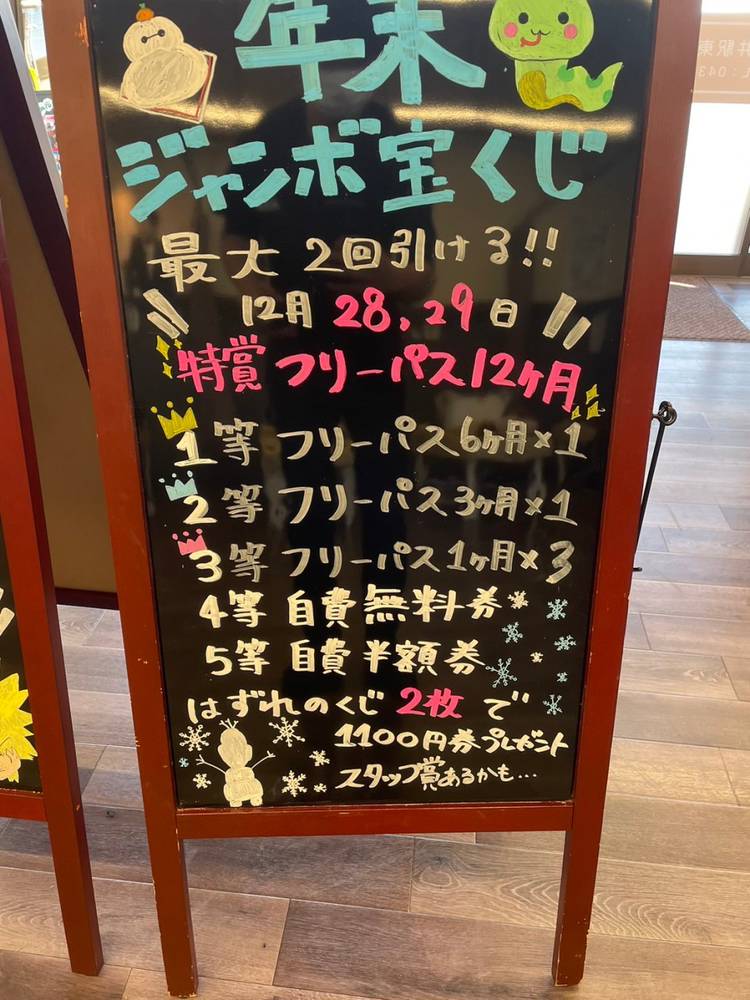 年末
ジャンボ宝くじ
最大 2回引ける!!
12月 28,29日
特賞 フリーパス12ケ月
1等 フリーパス6ヶ月×1
2等 フリーパス3ヶ月×1
3等 フリーパス1ヶ月×3
4等 自費無料券
5等 自費半額券
はずれのくじ 2枚で
1100円券プレゼント
スタッフ賞あるかも…